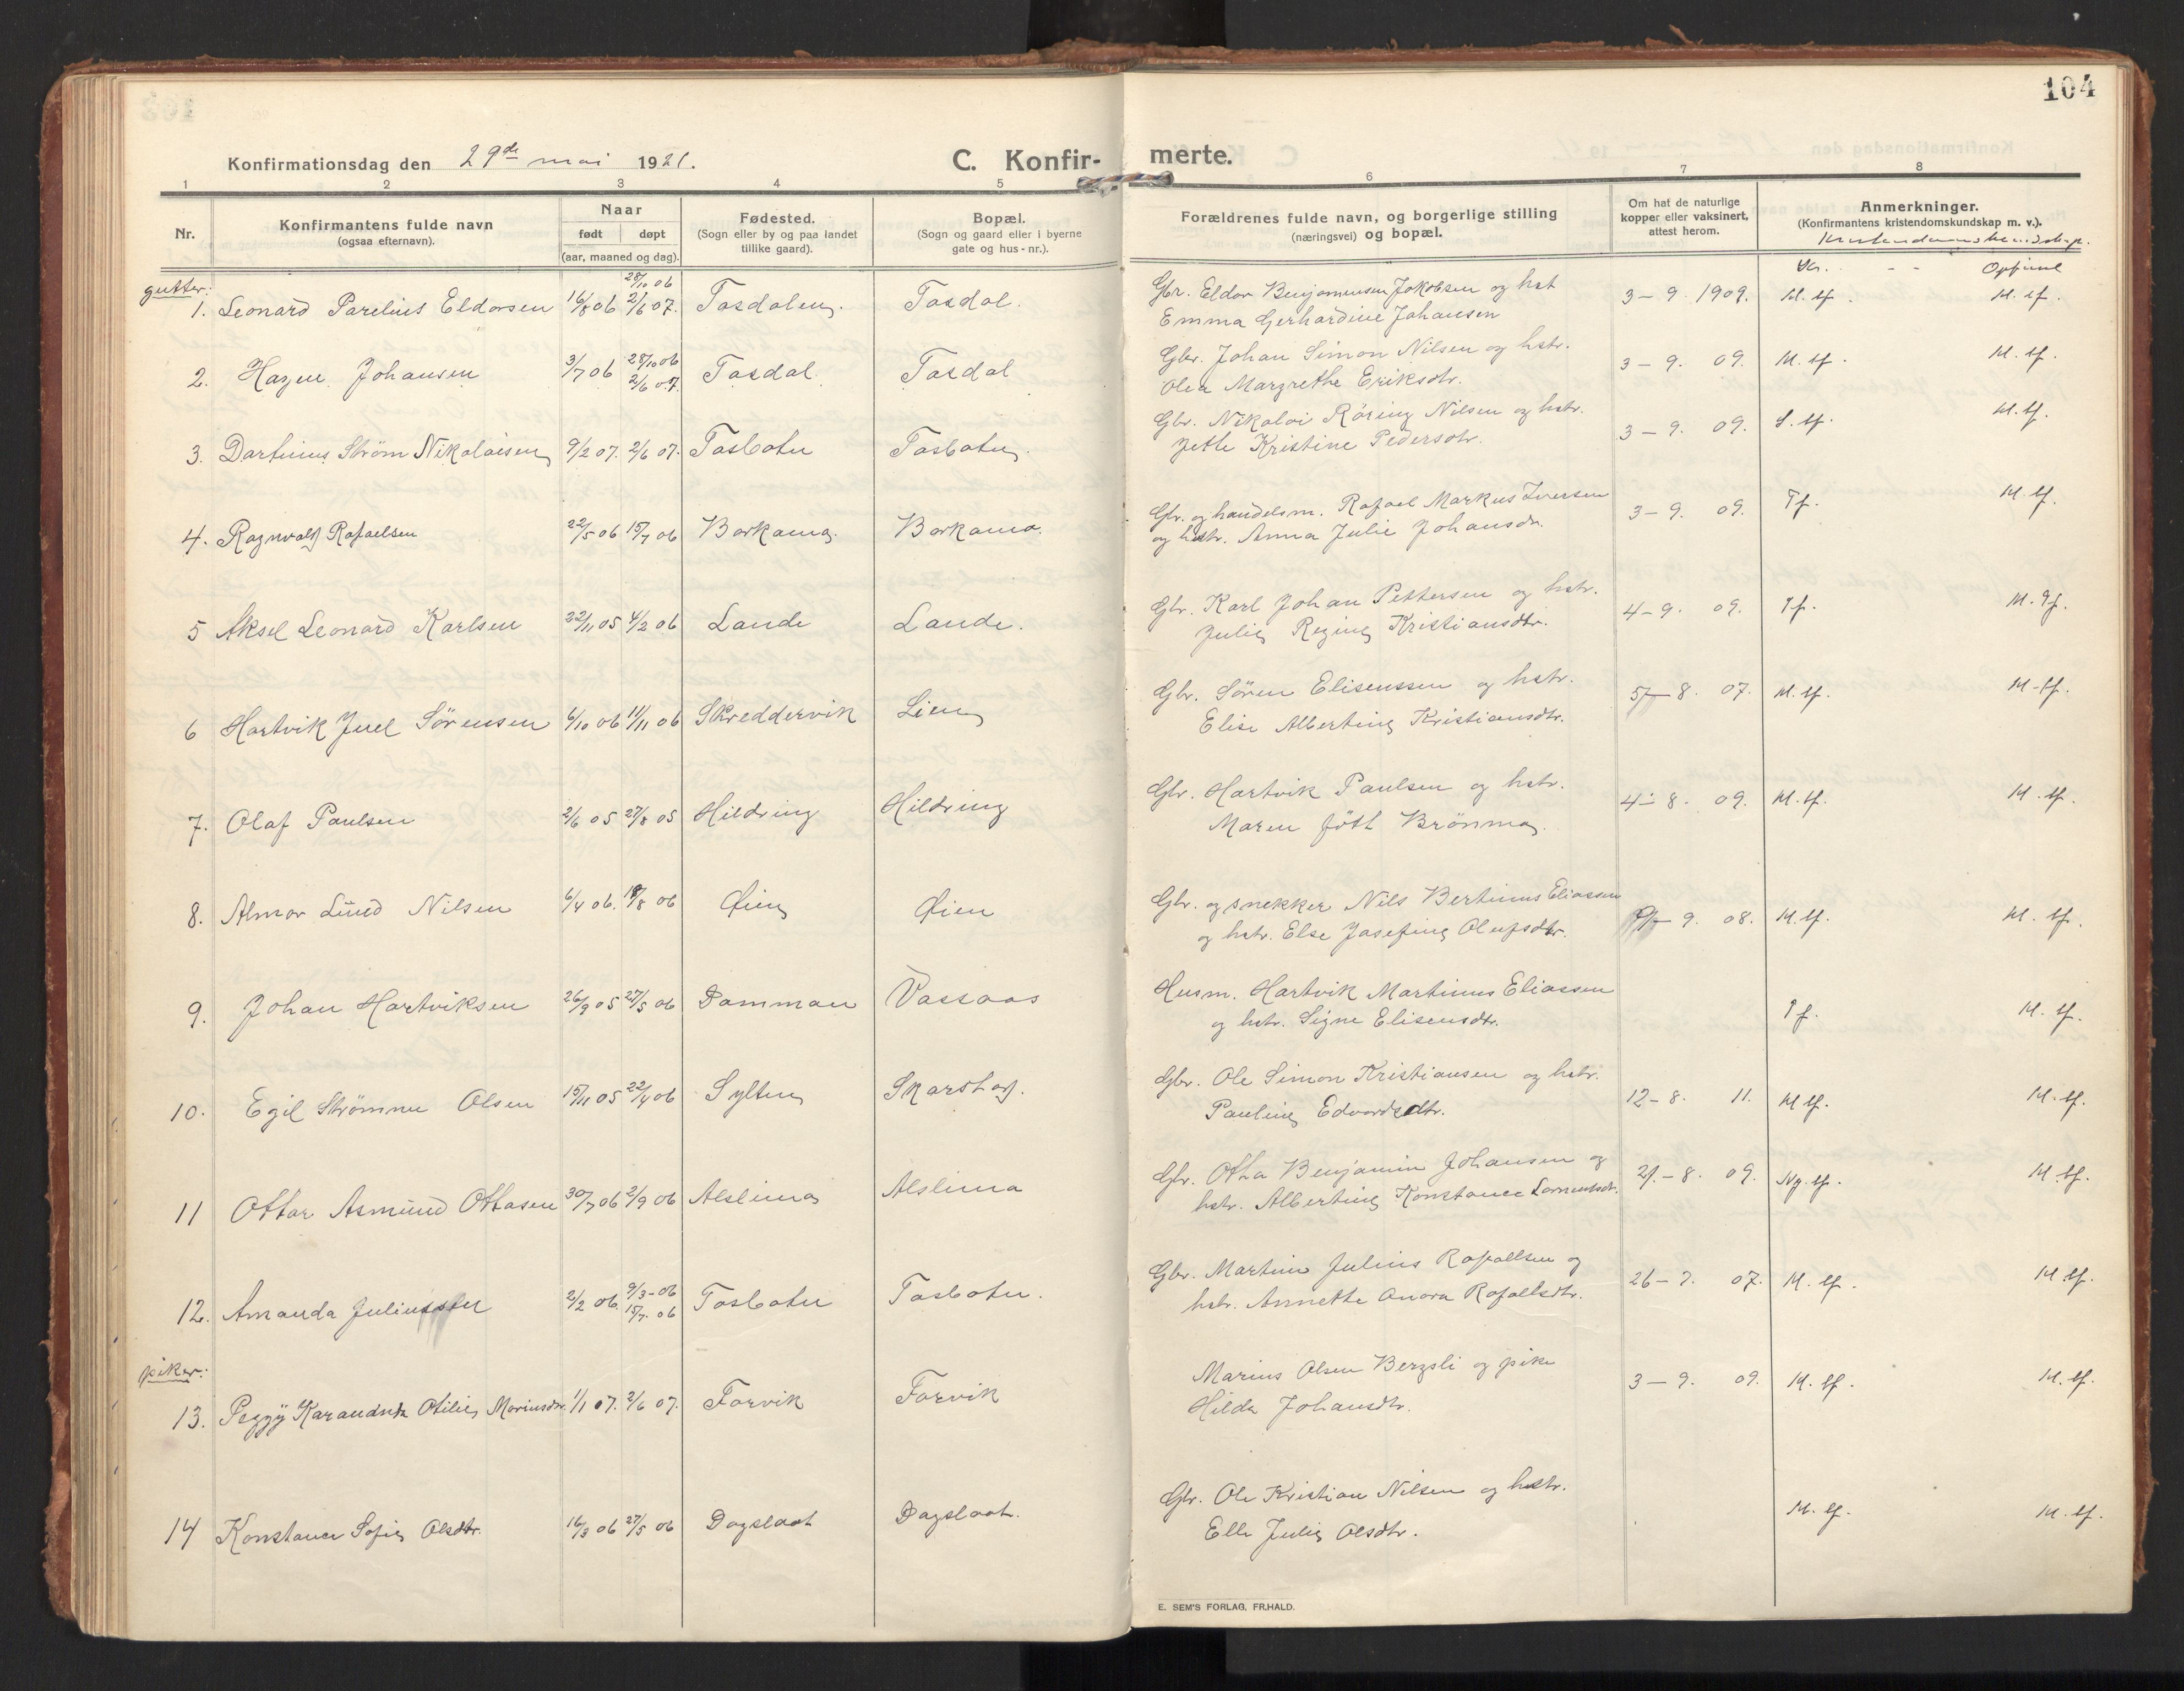 104
Konfirmationsdag den 29de mai 1921.
C. Konfir- merte.
1 2 3 4 5 6 7 8
Nr.
Konfirmantens fulde navn
(ogsaa efternavn).
Naar
født døpt
(aar, maaned og dag).
Fødested.
(Sogn eller by og paa landet
tillike gaard).
Bopæl.
(Sogn og gaard eller i byerne
gate og hus-nr.).
Forældrenes fulde navn, og borgerlige stilling
(næringsvei) og bopæl.
Om hat de naturlige
kopper eller vaksinert,
attest herom.
Anmerkninger.
(Konfirmantens kristendomskundskap m. v.).
Kristendomskundskap.
gutter:
28/10 06
1. Leonard Parelius Eldorsen 16/8 06 2/6 07. Tosdalen. Tosdal. Gbr. Eldor Benjamensen Jakobsen og hst 3-9 1909. M. tf. M. tf.
Emma Gerhardine Johansen
2. Hagen Johansen 3/7 06 28/10 06 Tosdal. Tosdal Gbr. Johan Simon Nilsen og hstr. 3-9. 09. M. tf. M. tf.
2/6 07. Olea Margrethe Eriksdtr.
3. Dartinus Strøm Nikolaisen 9/2 07. 2/6 07. Tosbotn Tosbotn. Gbr. Nikolai Röring Nilsen og hstr. 3-9. 09. S. tf. M. tf.
Jette Kristine Pedersdtr.
4. Ragnvald Rafaelsen 22/5 06 15/7 06 Borkamo. Borkamo. Gbr. og handelsm. Rafael Markus Iversen 3-9. 09. Tf. M. tf.
og hstr. Anna Julie Johansdtr.
5 Aksel Leonard Karlsen 22/11 05 4/2 06 Lande Lande. Gbr. Karl Johan Pettersen og hstr. 4-9. 09. Tf. M. Tf.
Julie Regine Kristiansdtr.
6 Hartvik Juel Sørensen 6/10 06 11/11 06 Skreddervik Lien Gbr. Søren Elisenssen og hstr. 5-8. 07. M. tf. M-tf.
Elise Albertine Kristiansdtr.
7. Olaf Paulsen 2/6 05 27/8 05 Hildring Hildring Gbr. Hartvik Paulsen og hstr. 4-8. 09. M. tf. M. tf.
Maren Jött Brönmo.
8. Almar Lund Nilsen 6/4 06. 19/8 06 Øien Øien Gbr. og snekker Nils Bertinus Eliassen 9. 08. M. tf. M. tf.
og hstr. Else Josefine Olufsdtr.
9. Johan Hartviksen 26/9 05 27/5 06 Domman Vassaas Husm. Hartvik Martinus Eliassen Tf. M. tf.
og hstr. Signe Elisensdtr.
10. Egil Strømme Olsen 15/11 05 22/4 06 Sylten Skarstad. Gbr. Ole Simon Kristiansen og hstr. 12-8. 11. M tf. M. tf.
Pauline Edvardsdtr.
11 Ottar Asmund Ottasen 30/7 06 2/9 06 Alslimo Alslimo Gbr. Otta Benjamin Johansen og 21.-8. 09. Ng. tf. M. tf.
hstr. Albertine Konstance Lorentsdtr.
12. Amanda Juliussen 2/2 06. 9/3-06 Tosbotn Tosbotn. Gbr. Martin Julius Rafaelsen og 26-7. 07. M. tf. M. tf.
15/7. 06 hstr. Annette Anora Rafaelsdtr.
piker:
13. Peggy Karandnta Otilie Mariusdtr. 1/1 07. 2/6 07. Forvik Forvik Marius Olsen Bergsli og pike 3-9. 09. M. tf. M. tf.
Hilda Johansdtr.
14 Konstance Sofie Olsdtr. 16/3 06 27/5 06 Dagslaat Dagslaat. Gbr. Ole Kristian Nilsen og hstr. M. tf. M. tf.
Elle Julie Olsdtr.
E. SEM'S FORLAG, FR.HALD.